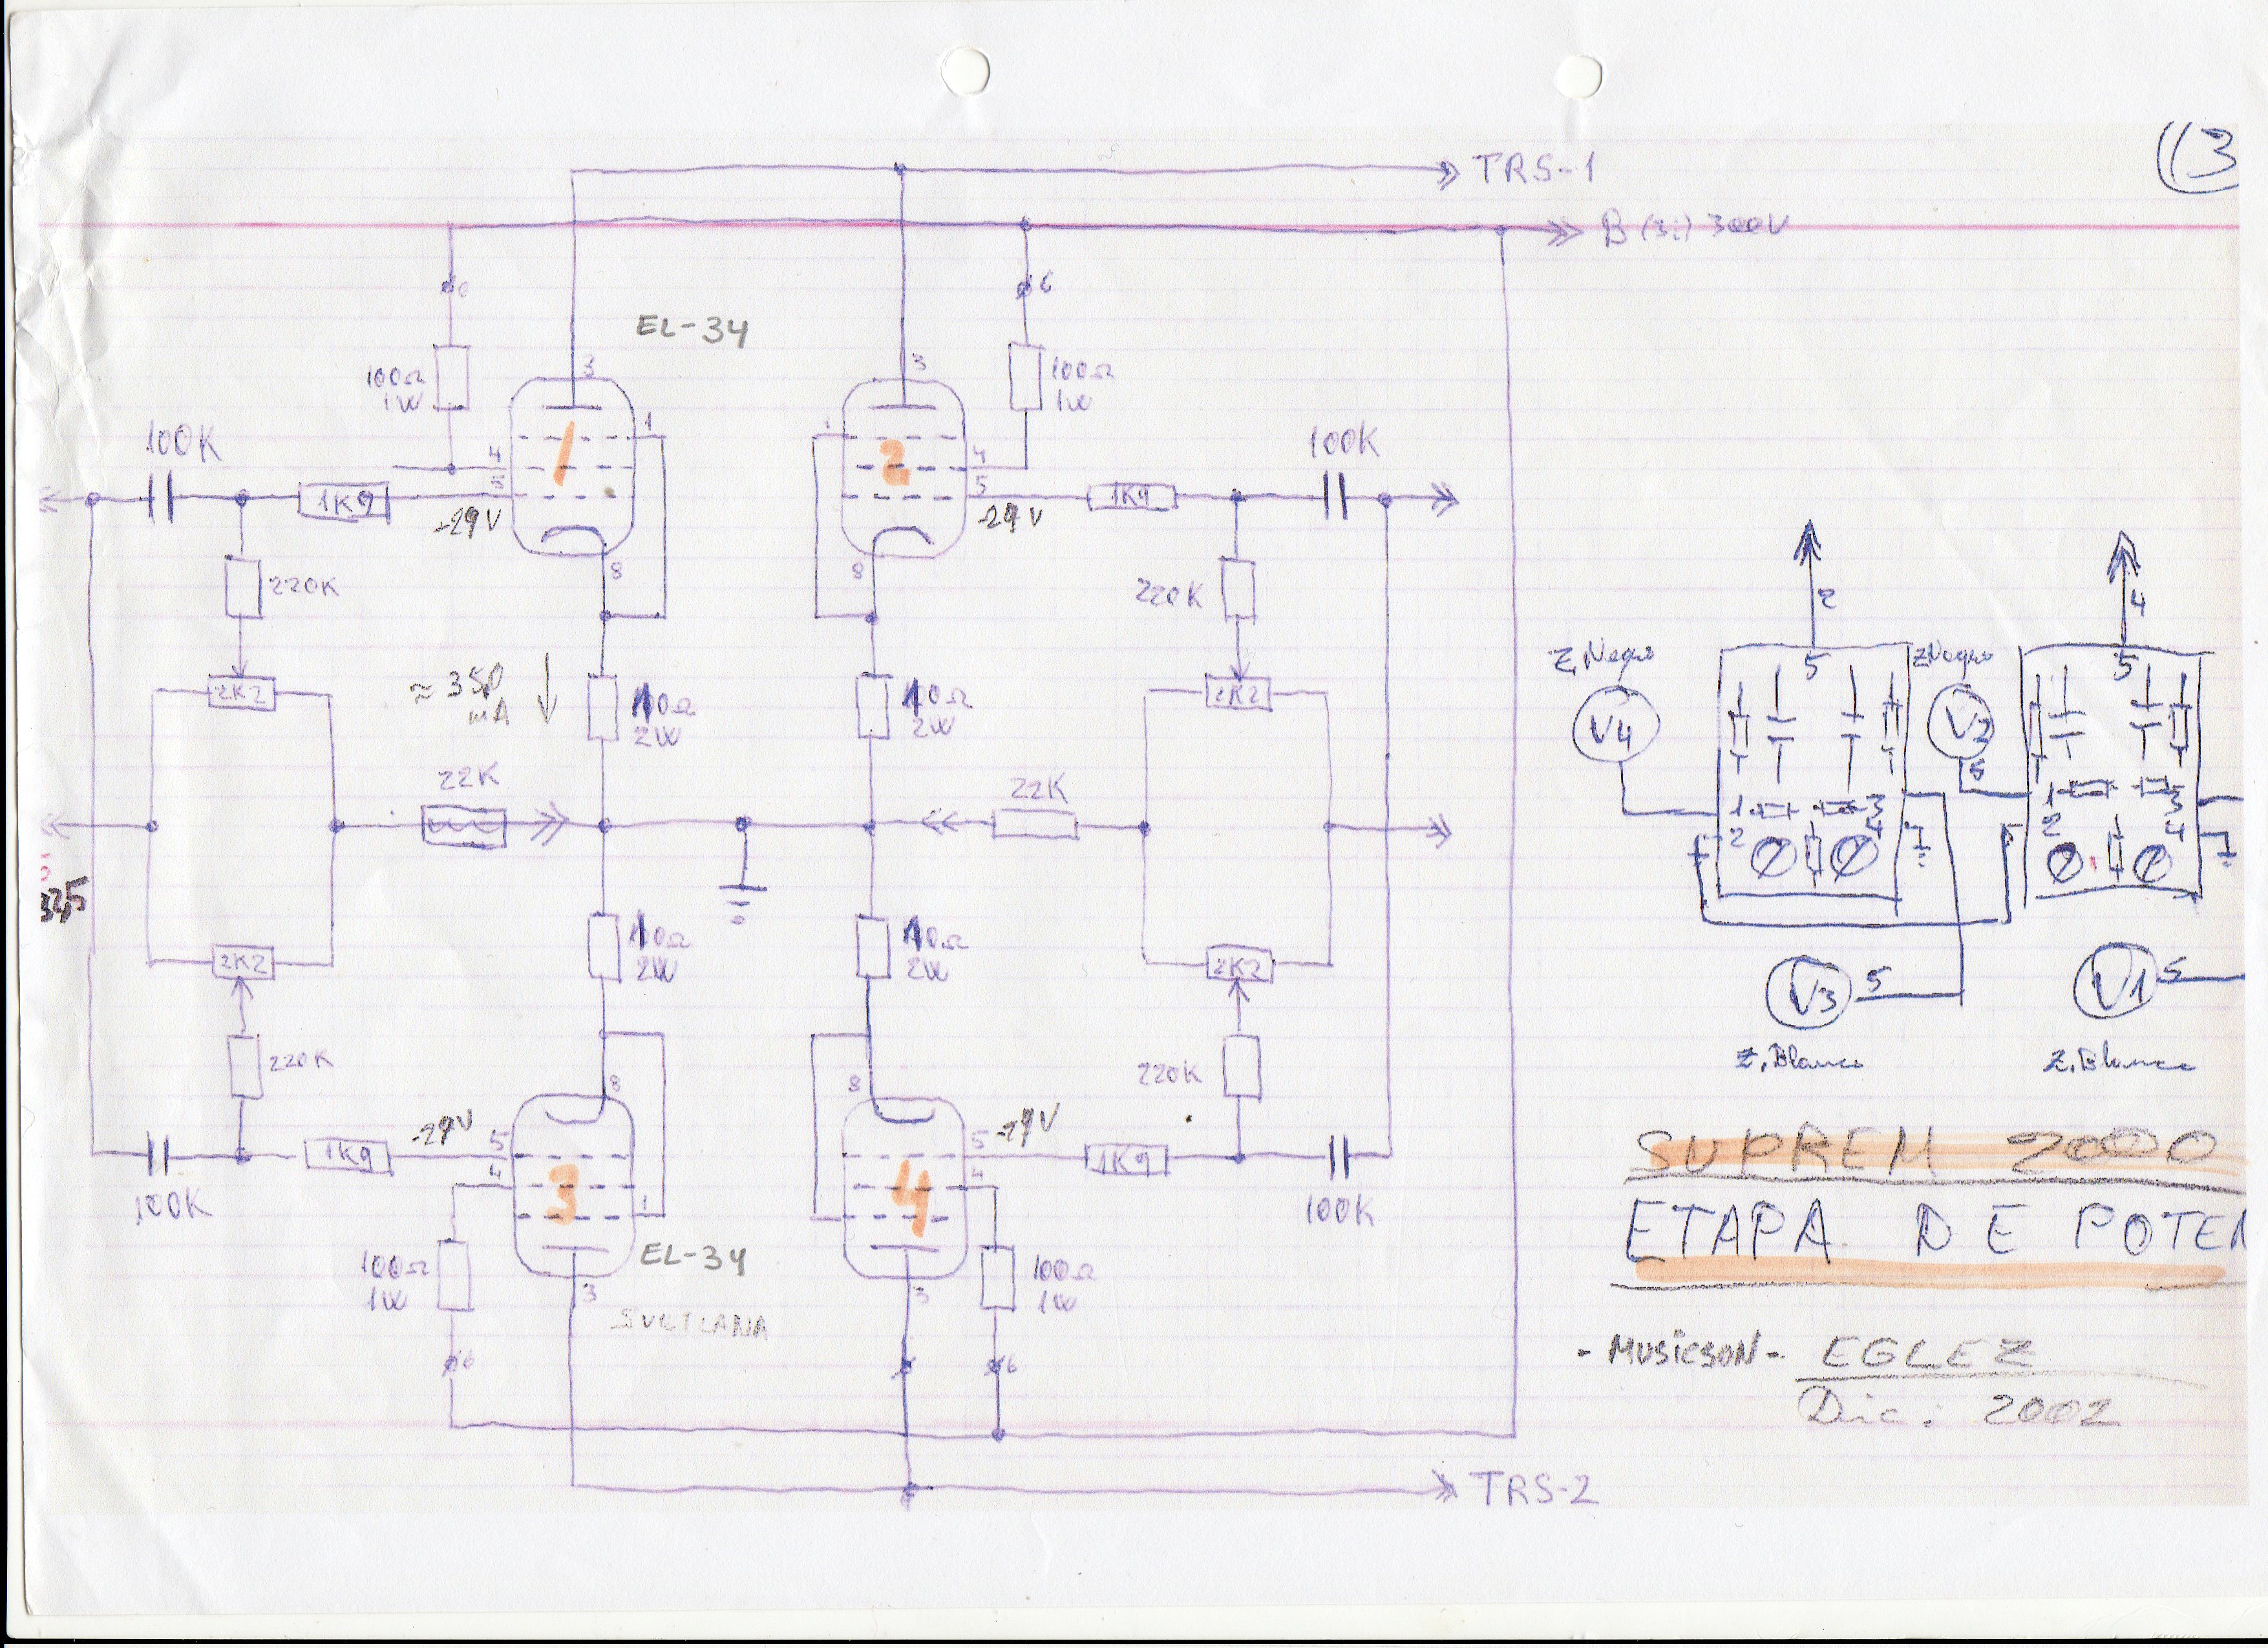 ((3
TRS-1
B (3i) 300V
6
6
EL-34
3
3
100Ω
1W
100Ω
1W
100K
1
1
100K
4
1
2
4
5
5
1K9
1K9
-29V
-29V
8
8
220K
220K
2
4
Z.Negro
5
ZNegro
5
2K2
≈ 350
mA
10Ω
2W
10Ω
2W
2K2
V4
V2
22K
22K
5
1
3
1
3
2
4
2
4
325
10Ω
2W
10Ω
2W
2K2
2K2
V3
5
V1
5
220K
220K
Z.Blanco
Z.Blanco
8
8
-29V
5
5
-29V
1K9
4
3
4
4
1K9
SUPREM 2000
100K
1
100K
ETAPA DE POTEN
100Ω
1W
EL-34
100Ω
1W
3
3
SVETLANA
6
6
- MUSICSON - EGLEZ
Dic: 2002
TRS-2